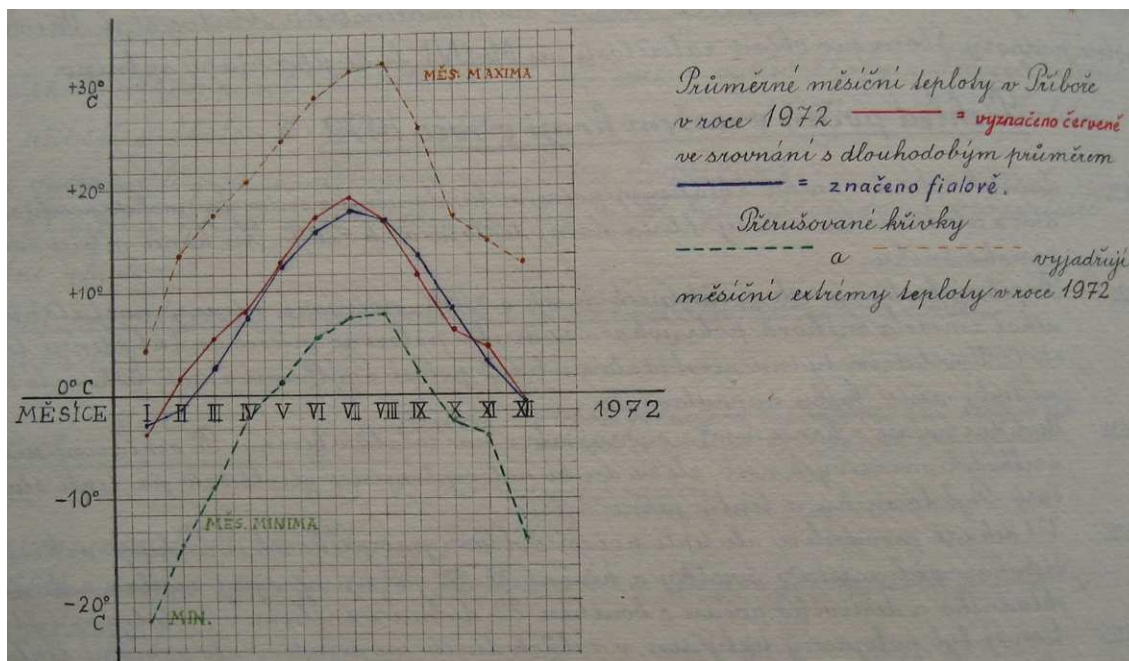 +30°
C
+20°
+10°
0°C
MĚSÍCE I II III IV V VI VII VIII IX X XI XII 1972
-10°
-20°
C
MĚS. MAXIMA
MĚS. MINIMA
MIN.
Průměrné měsíční teploty v Příboře
v roce 1972 = vyznačeno červeně
ve srovnání s dlouhodobým průměrem
= značeno fialově.
Přerušované křivky
a vyjadřují
měsíční extrémy teploty v roce 1972